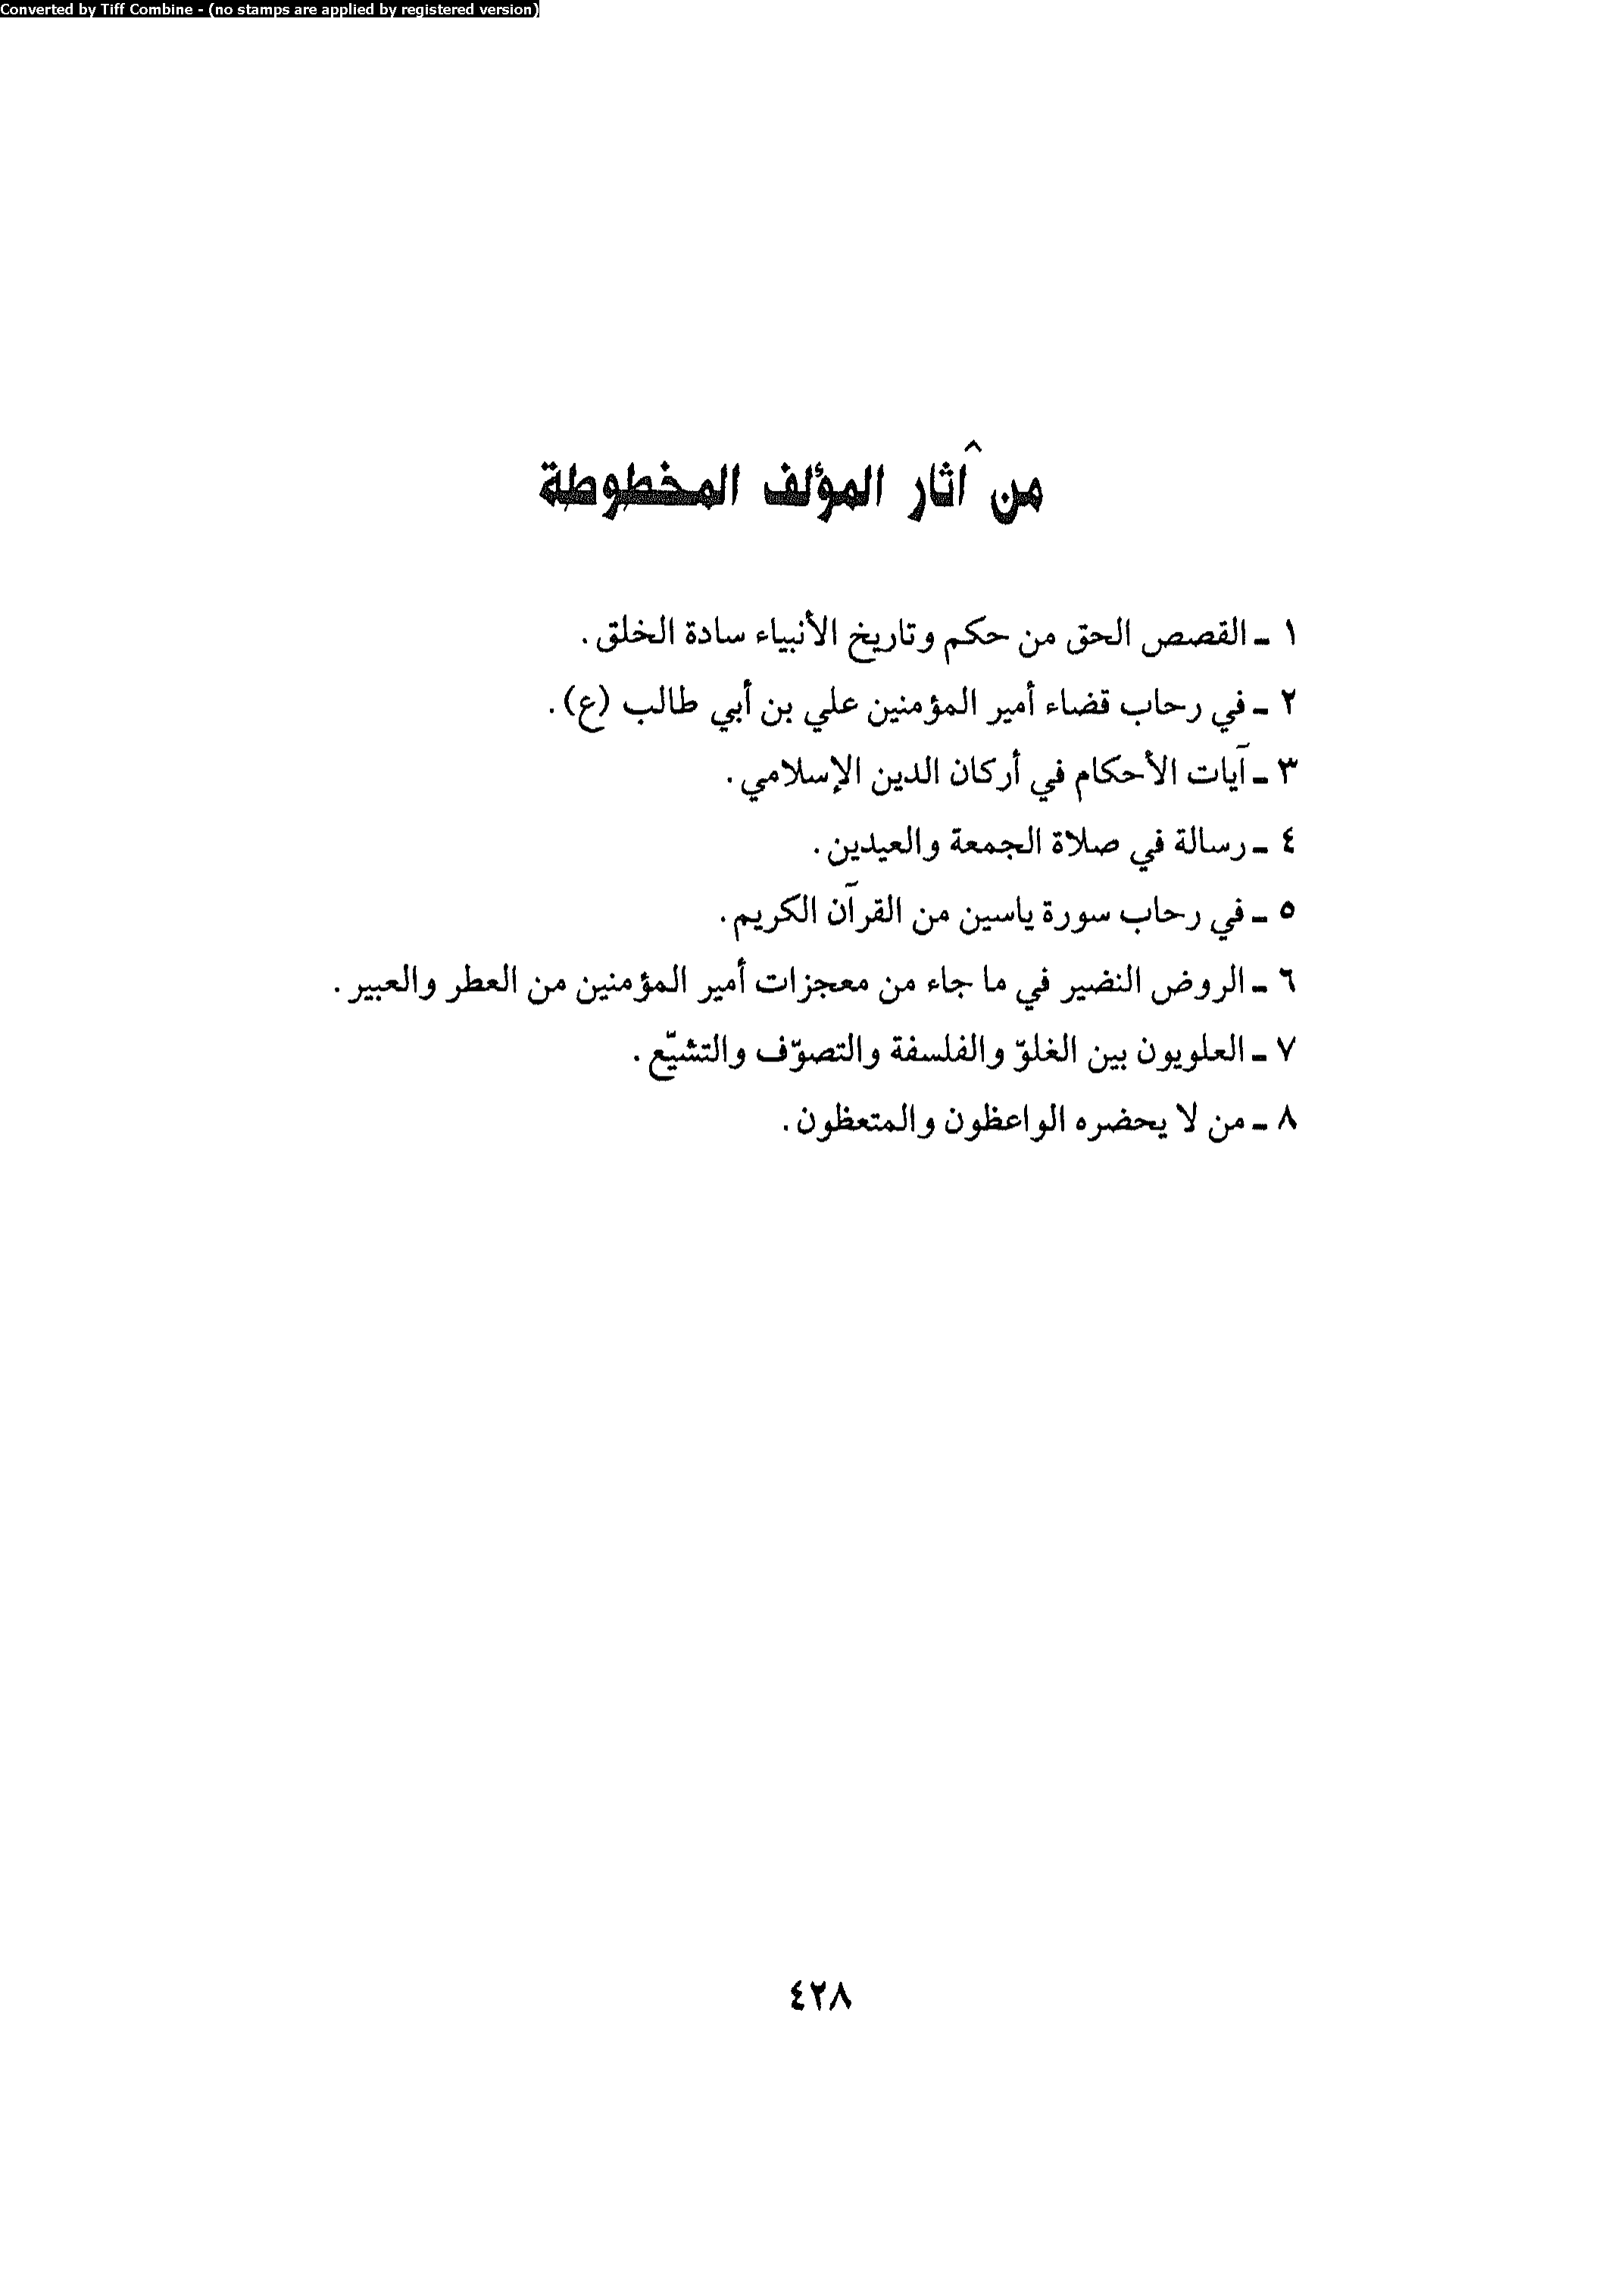 Converted by Tiff Combine - (no stamps are applied by registered version)
من آثار المؤلف المخطوطة
١ ـ القصص الحق من حكم وتاريخ الأنبياء سادة الخلق.
٢ ـ في رحاب قضاء أمير المؤمنين علي بن أبي طالب (ع).
٣ ـ آيات الأحكام في أركان الدين الإسلامي.
٤ ـ رسالة في صلاة الجمعة والعيدين.
٥ ـ في رحاب سورة ياسين من القرآن الكريم.
٦ ـ الروض النضير في ما جاء من معجزات أمير المؤمنين من العطر والعبير.
٧ ـ العلويون بين الغلوّ والفلسفة والتصوّف والتشيّع.
٨ ـ من لا يحضره الواعظون والمتعظون.
٤٢٨